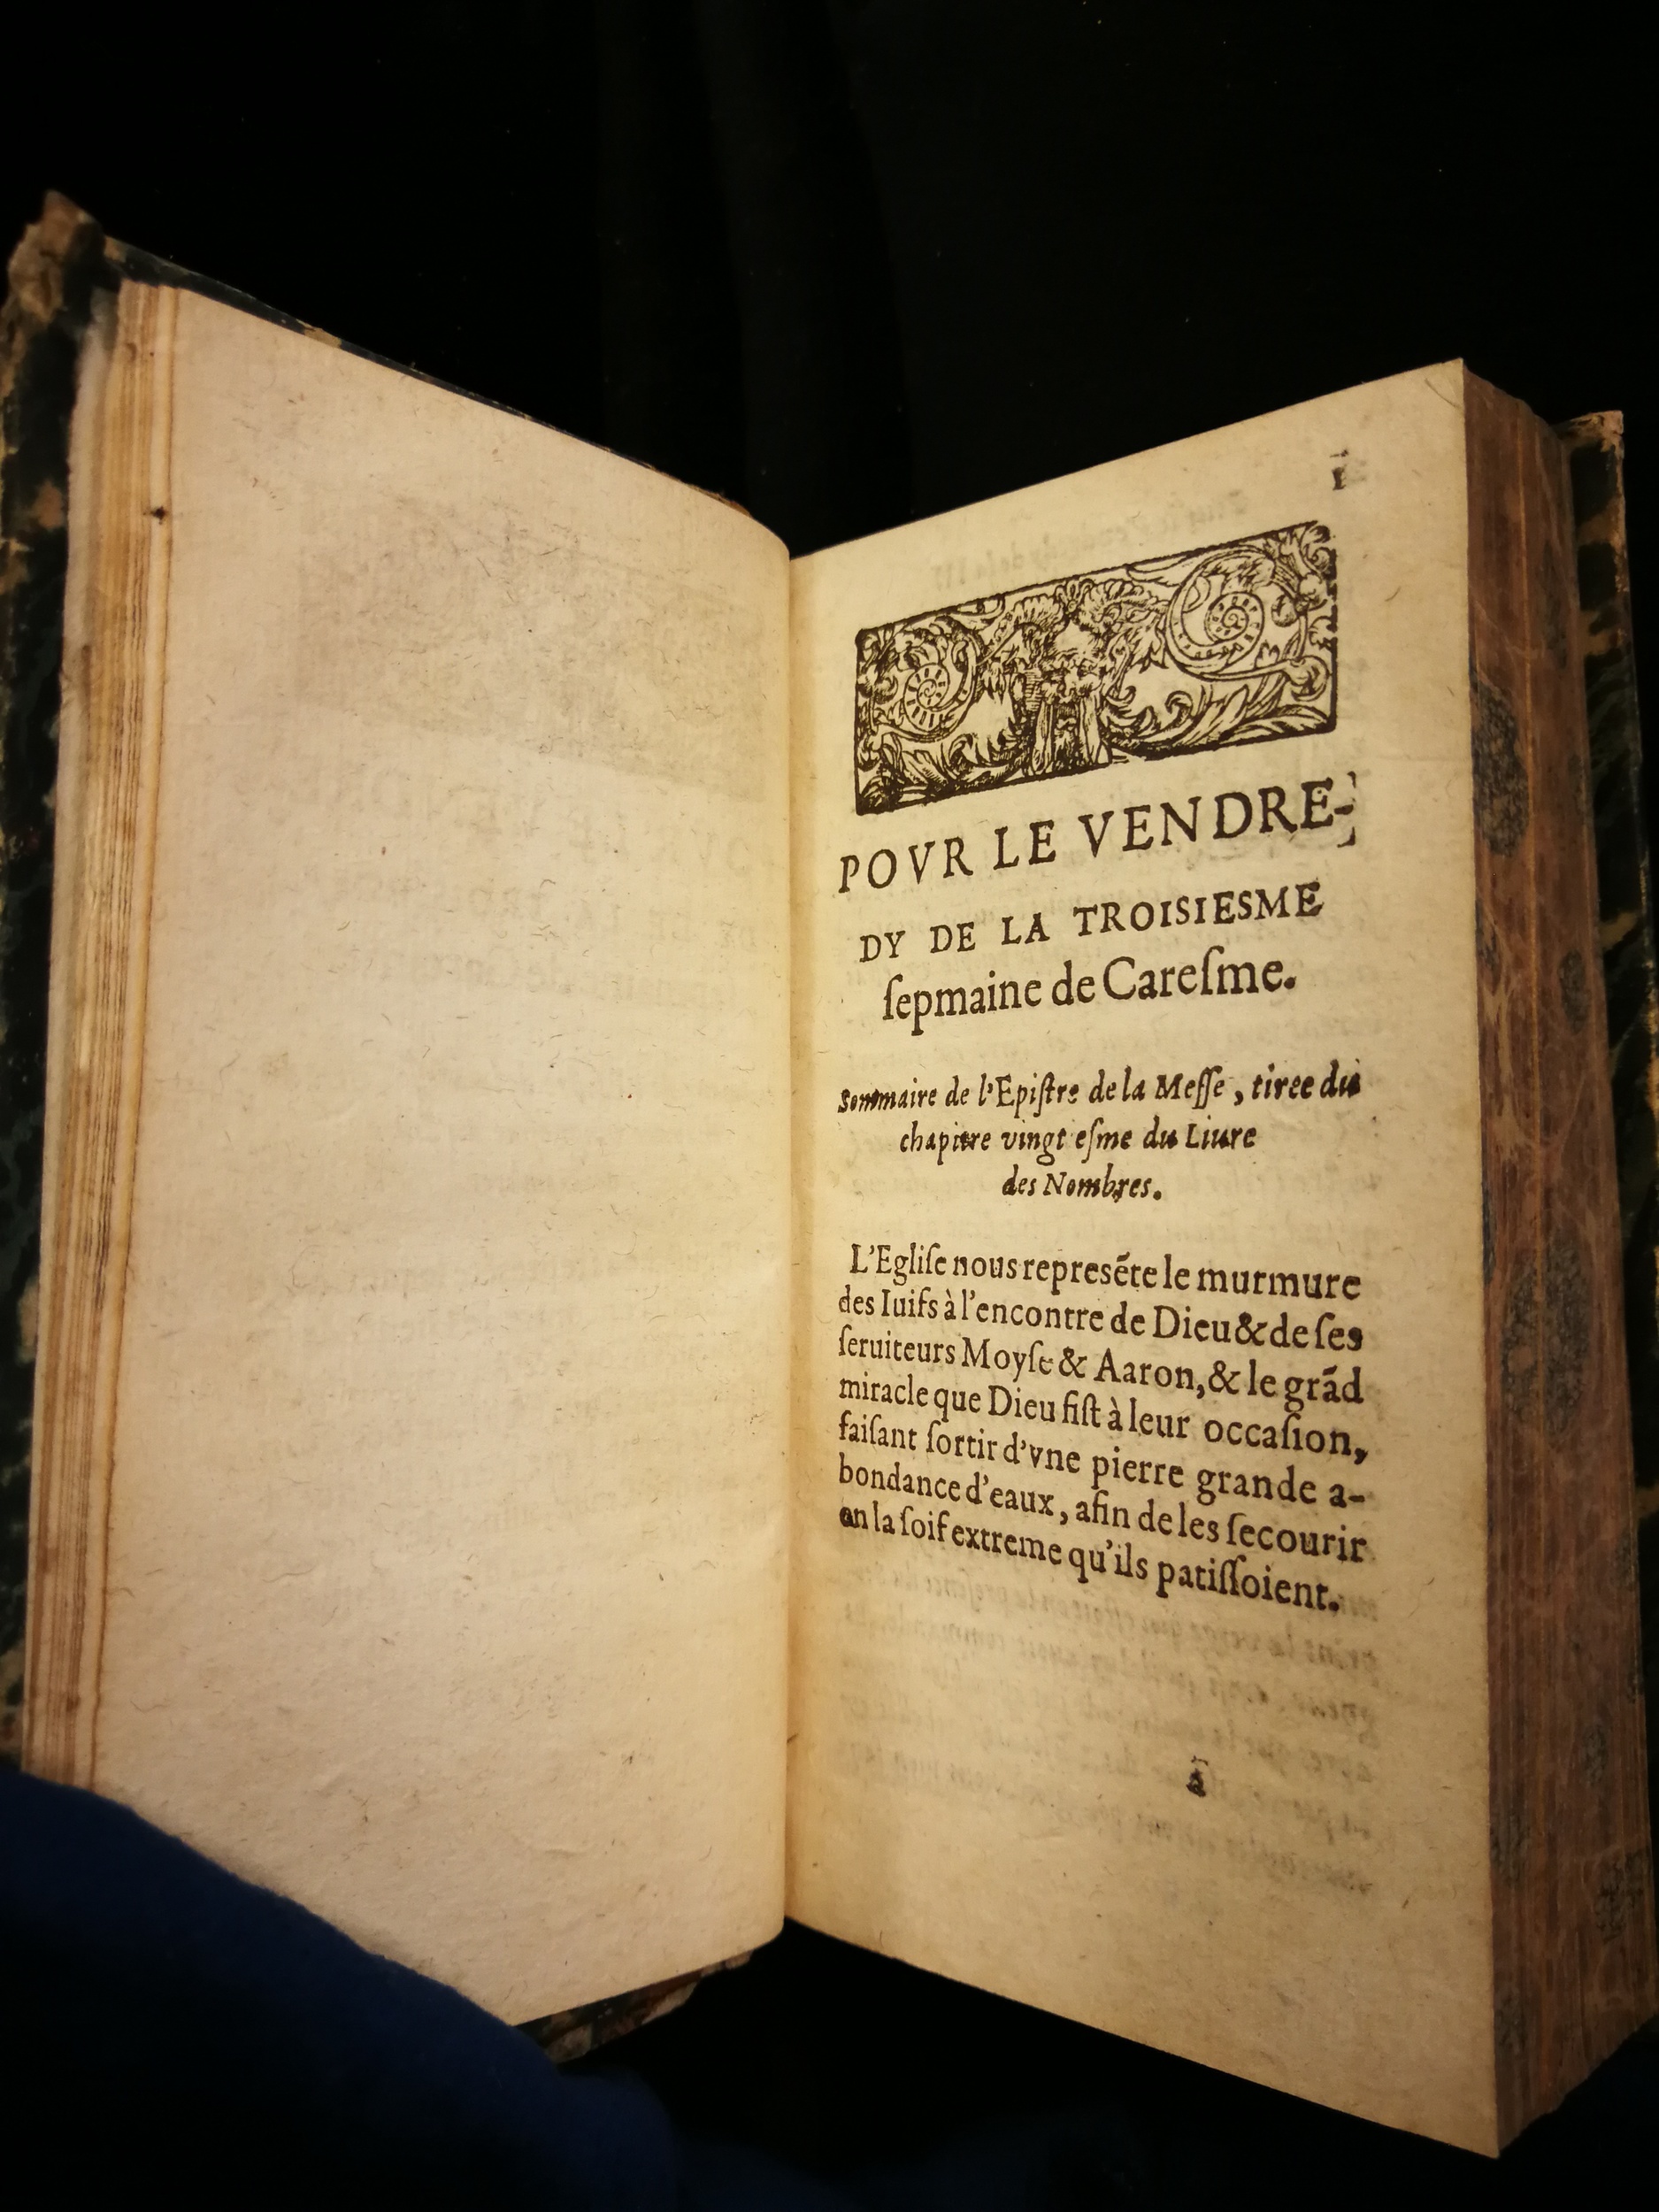 1
POVR LE VENDRE-
DY DE LA TROISIESME
ſepmaine de Careſme.
Sommaire de l'Epiſtre de la Meſſe, tiree du
chapitre vingt eſme du Liure
des Nombres.
L'Egliſe nous repreſẽte le murmure
des Iuifs à l'encontre de Dieu & de ſes
ſeruiteurs Moyſe & Aaron, & le grãd
miracle que Dieu fiſt à leur occaſion,
faiſant ſortir d'vne pierre grande a-
bondance d'eaux, afin de les ſecourir
en la ſoif extreme qu'ils patiſſoient.
ā